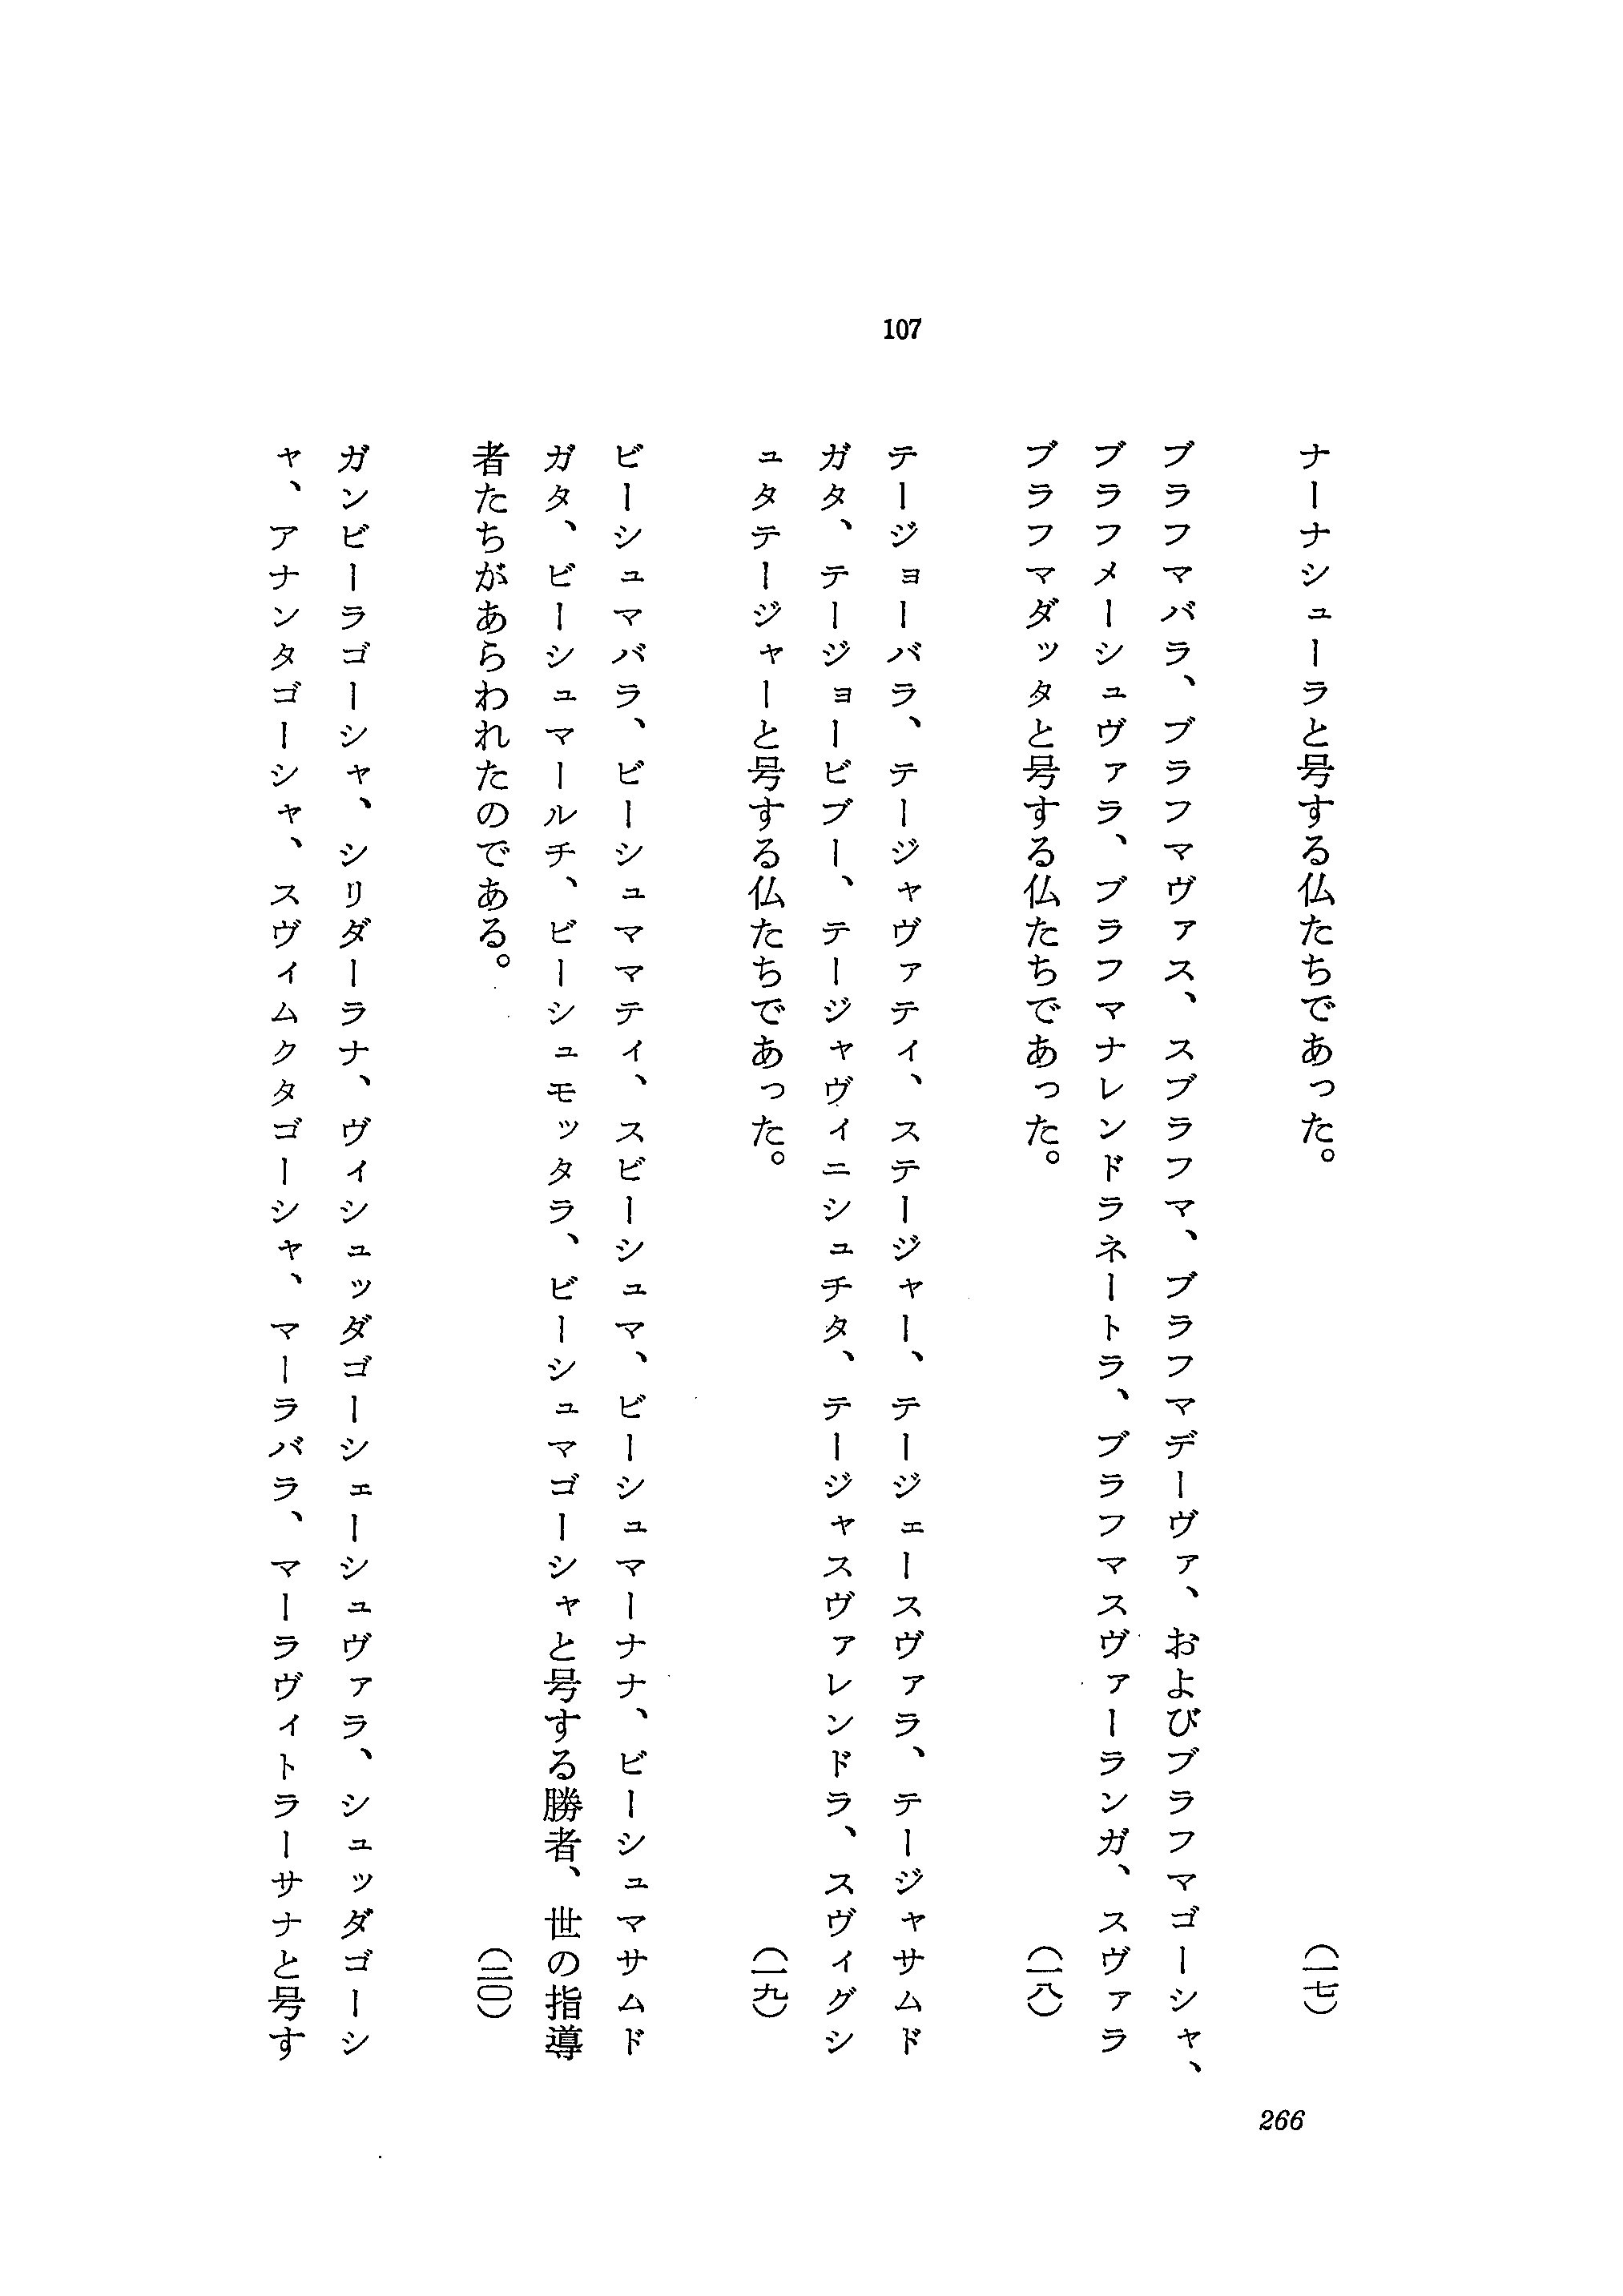 107
ナーナシューラと号する仏たちであった。
(一七)
ブラフマバラ、ブラフマヴァス、スブラフマ、ブラフマデーヴァ、およびブラフマゴーシャ、
ブラフメーシュヴァラ、ブラフマナレンドラネートラ、ブラフマスヴァーランガ、スヴァラ
ブラフマダッタと号する仏たちであった。
(一八)
テージョーバラ、テージャヴァティ、ステージャー、テージェースヴァラ、テージャサムド
ガタ、テージョービブー、テージャヴィニシュチタ、テージャスヴァレンドラ、スヴィグシ
ュタテージャーと号する仏たちであった。
(一九)
ビーシュマバラ、ビーシュママティ、スビーシュマ、ビーシュマーナナ、ビーシュマサムド
ガタ、ビーシュマールチ、ビーシュモッタラ、ビーシュマゴーシャと号する勝者、世の指導
者たちがあらわれたのである。
(二〇)
ガンビーラゴーシャ、シリダーラナ、ヴィシュッダゴーシェーシュヴァラ、シュッダゴーシ
ャ、アナンタゴーシャ、スヴィムクタゴーシャ、マーラバラ、マーラヴィトラーサナと号す
266